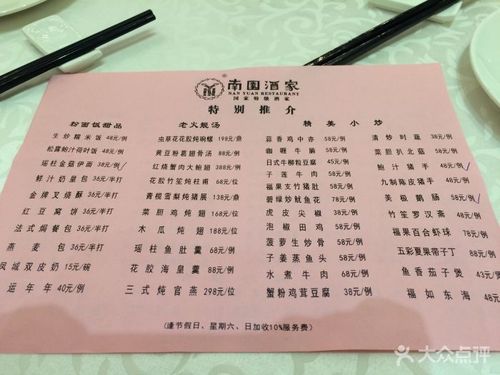 南園酒家
NAN YUAN RESTAURANT
国家特级酒家
特别推介
粉面饭甜品
生炒糯米饭 48元/例
松露鲍汁荷叶饭 48元/例
瑶柱金菇伊面 38元/例
鲜汁奶皇包 36元/半打
金牌叉烧酥 36元/半打
红豆窝饼 36元/半打
法式焗餐包 36元/半打
燕麦包 36元/半打
凤城双皮奶 15元/碗
运年年 40元/例
老火靓汤
虫草花花胶炖响螺 198元/鼎
黄豆粉葛翅骨汤 88元/例
红烧蟹肉大鲍翅 388元/例
花胶竹笙炖柱甫 68元/位
青榄雪梨炖猪𦟌 138元/鼎
菜胆鸡炖翅 168元/位
木瓜炖翅 168元/位
瑶柱鱼肚羹 68元/例
花胶海皇羹 88元/例
三式炖官燕 298元/位
精美小炒
蒜香鸡中亦 58元/例
咖喱牛腩 58元/例
日式牛柳粒豆腐 45元/例
子莲牛肉 58元/例
福果支竹猪肚 58元/例
碧绿炒鱿鱼花 78元/例
虎皮尖椒 38元/例
泡椒田鸡 58元/例
菠萝生炒骨 58元/例
子姜蒸鱼头 58元/例
水煮牛肉 68元/例
蟹粉鸡茸豆腐 38元/例
清炒时蔬 38元/例
菜胆扒北菇 58元/例
鲍汁猪手 48元/例
九制陈皮猪手 48元/例
美极鹅肠 58元/例
竹笙罗汉斋 48元/例
福果百合虾球 78元/例
五彩夏果带子丁 88元/例
鱼香茄子煲 43元/
福如东海 48元/
(逢节假日、星期六、日加收10%服务费)
大众点评